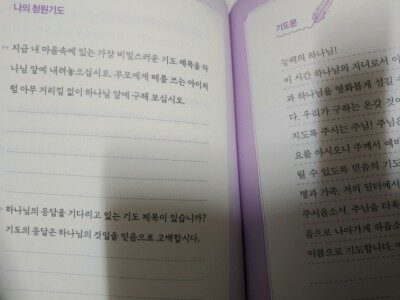 나의 청원기도
지금 내 마음속에 있는 가장 비밀스러운 기도 제목을 하
나님 앞에 내려놓으십시오. 부모에게 떼를 쓰는 아이처
럼 아무 거리낌 없이 하나님 앞에 구해 보십시오.
하나님의 응답을 기다리고 있는 기도 제목이 있습니까?
기도의 응답은 하나님의 것임을 믿음으로 고백합시다.
기도문
능력의 하나님!
이 시간 하나님의 자녀로서 이
과 하나님을 영화롭게 섬길 수
다. 우리가 구하는 온갖 것이
치도록 주시는 주님! 주님은
요를 아시오니 주께서 예비
릴 수 있도록 믿음의 기도
명과 가족, 저의 일터에서
주시옵소서. 주님을 더욱
음으로 나아가게 하옵소
이름으로 기도합니다. 아